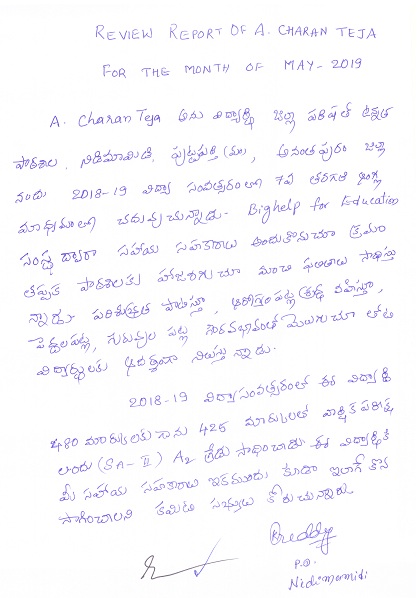 REVIEW REPORT OF A. CHARAN TEJA
FOR THE MONTH OF MAY-2019
A. Charan Teja అను విద్యార్థి జిల్లా పరిషత్ ఉన్నత
పాఠశాల, నిడిమామిడి, పుట్టపర్తి (మం), అనంతపురం జిల్లా
నందు 2018-19 విద్యా సంవత్సరంలో 7వ తరగతి ఆంగ్ల
మాధ్యమంలో చదువుచున్నాడు. Bighelp for Education
సంస్థ ద్వారా సహాయ సహకారాలు అందుకొనుచూ క్రమం
తప్పక పాఠశాలకు హాజరగుచూ మంచి ఫలితాలు సాధిస్తు
న్నాడు. పరిశుభ్రత పాటిస్తూ, ఆరోగ్యంపట్ల శ్రద్ధ వహిస్తూ,
పెద్దలపట్ల, గురువుల పట్ల గౌరవభావంతో మెలుగుచూ తోటి
విద్యార్థులకు ఆదర్శంగా నిలుస్తున్నాడు.
2018-19 విద్యాసంవత్సరంలో ఈ విద్యార్థి
480 మార్కులకు గాను 426 మార్కులతో వార్షిక పరీక్ష
లందు (SA-II) A2 గ్రేడు సాధించాడు. ఈ విద్యార్థికి
మీ సహాయ సహకారాలు ఇకముందు కూడా ఇలాగే కొన
సాగించాలని కమిటి సభ్యులు కోరుచున్నారు.
Reddy
P.O.
Nidimamidi